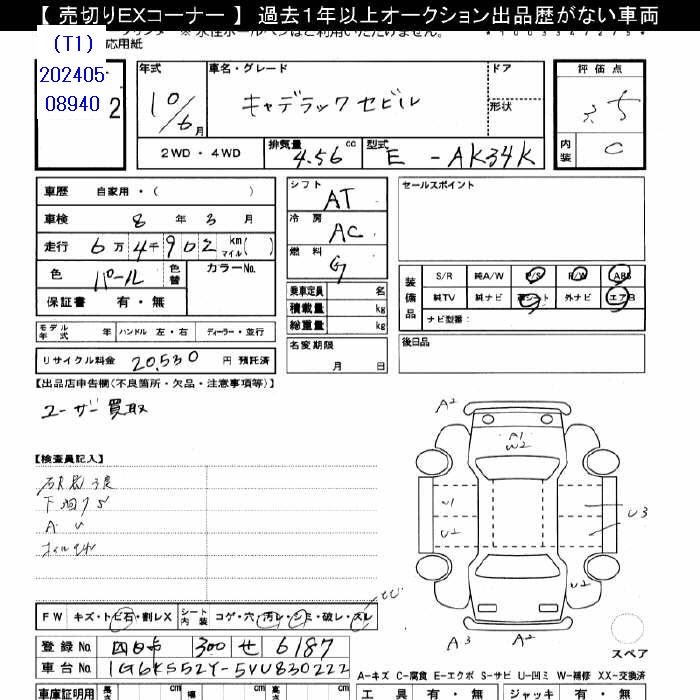 【 売切りEXコーナー 】 過去１年以上オークション出品歴がない車両
応用紙
(T1)
202405
08940
2
年式
10/6 月
車名・グレード
キャデラックセビル
ドア
形状
評価点
3.5
内装
C
2WD ・ 4WD
排気量
4.56 cc
型式
E - AK34K
車歴 自家用・( )
車検 8 年 3 月
走行 6 万 4 千 902 km マイル( )
色 パール 色替 カラーNo.
保証書 有・無
シフト
AT
冷房
AC
燃料
G
乗車定員 名
積載量 kg
総重量 kg
セールスポイント
装備品
S/R 純A/W P/S P/W ABS
純TV 純ナビ 革シート 外ナビ エアB
ナビ型番：
モデル年式 年 ハンドル 左・右 ディーラー・並行
リサイクル料金 20,530 円 預託済
名変期限
月 日
後日品
【出品店申告欄(不良箇所・欠品・注意事項等)】
ユーザー買取
【検査員記入】
下廻りS
A U
A2
A1
W2
U1
U2
U3
U2
A3
A2
スペア
FW キズ・トビ石・割レX シート内装 コゲ・穴・汚レ・シミ・破レ・スレ
登録No. 四日市 300 せ 6187
車台No. 1G6KS52Y-5VU830222
A-キズ C-腐食 E-エクボ S-サビ U-凹ミ W-補修 XX-交換済
車庫証明用 長さ cm 幅 cm 高さ cm
工具 有・無 ジャッキ 有・無